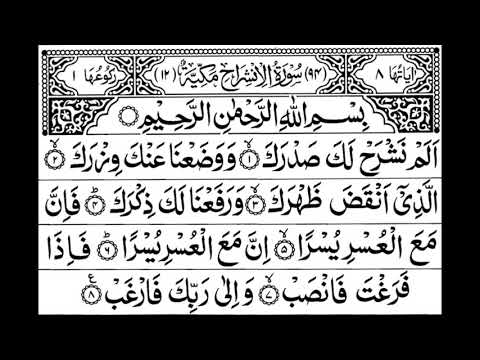 اٰیَاتُهَا ۸ (۹۴) سُوْرَةُ الْاِنْشِرَاحِ مَكِّيَّةٌ (۱۲) رُكُوْعُهَا ۱
بِسْمِ اللّٰهِ الرَّحْمٰنِ الرَّحِيْمِ
اَلَمْ نَشْرَحْ لَكَ صَدْرَكَ ۙ‏﴿۱﴾ وَوَضَعْنَا عَنْكَ وِزْرَكَ ۙ‏﴿۲﴾
الَّذِيْۤ اَنْقَضَ ظَهْرَكَ ۙ‏﴿۳﴾ وَرَفَعْنَا لَكَ ذِكْرَكَ ؕ‏﴿۴﴾ فَاِنَّ
مَعَ الْعُسْرِ يُسْرًا ۙ‏﴿۵﴾ اِنَّ مَعَ الْعُسْرِ يُسْرًا ؕ‏﴿۶﴾ فَاِذَا
فَرَغْتَ فَانْصَبْ ۙ‏﴿۷﴾ وَاِلٰى رَبِّكَ فَارْغَبْ ‏﴿۸﴾ ع